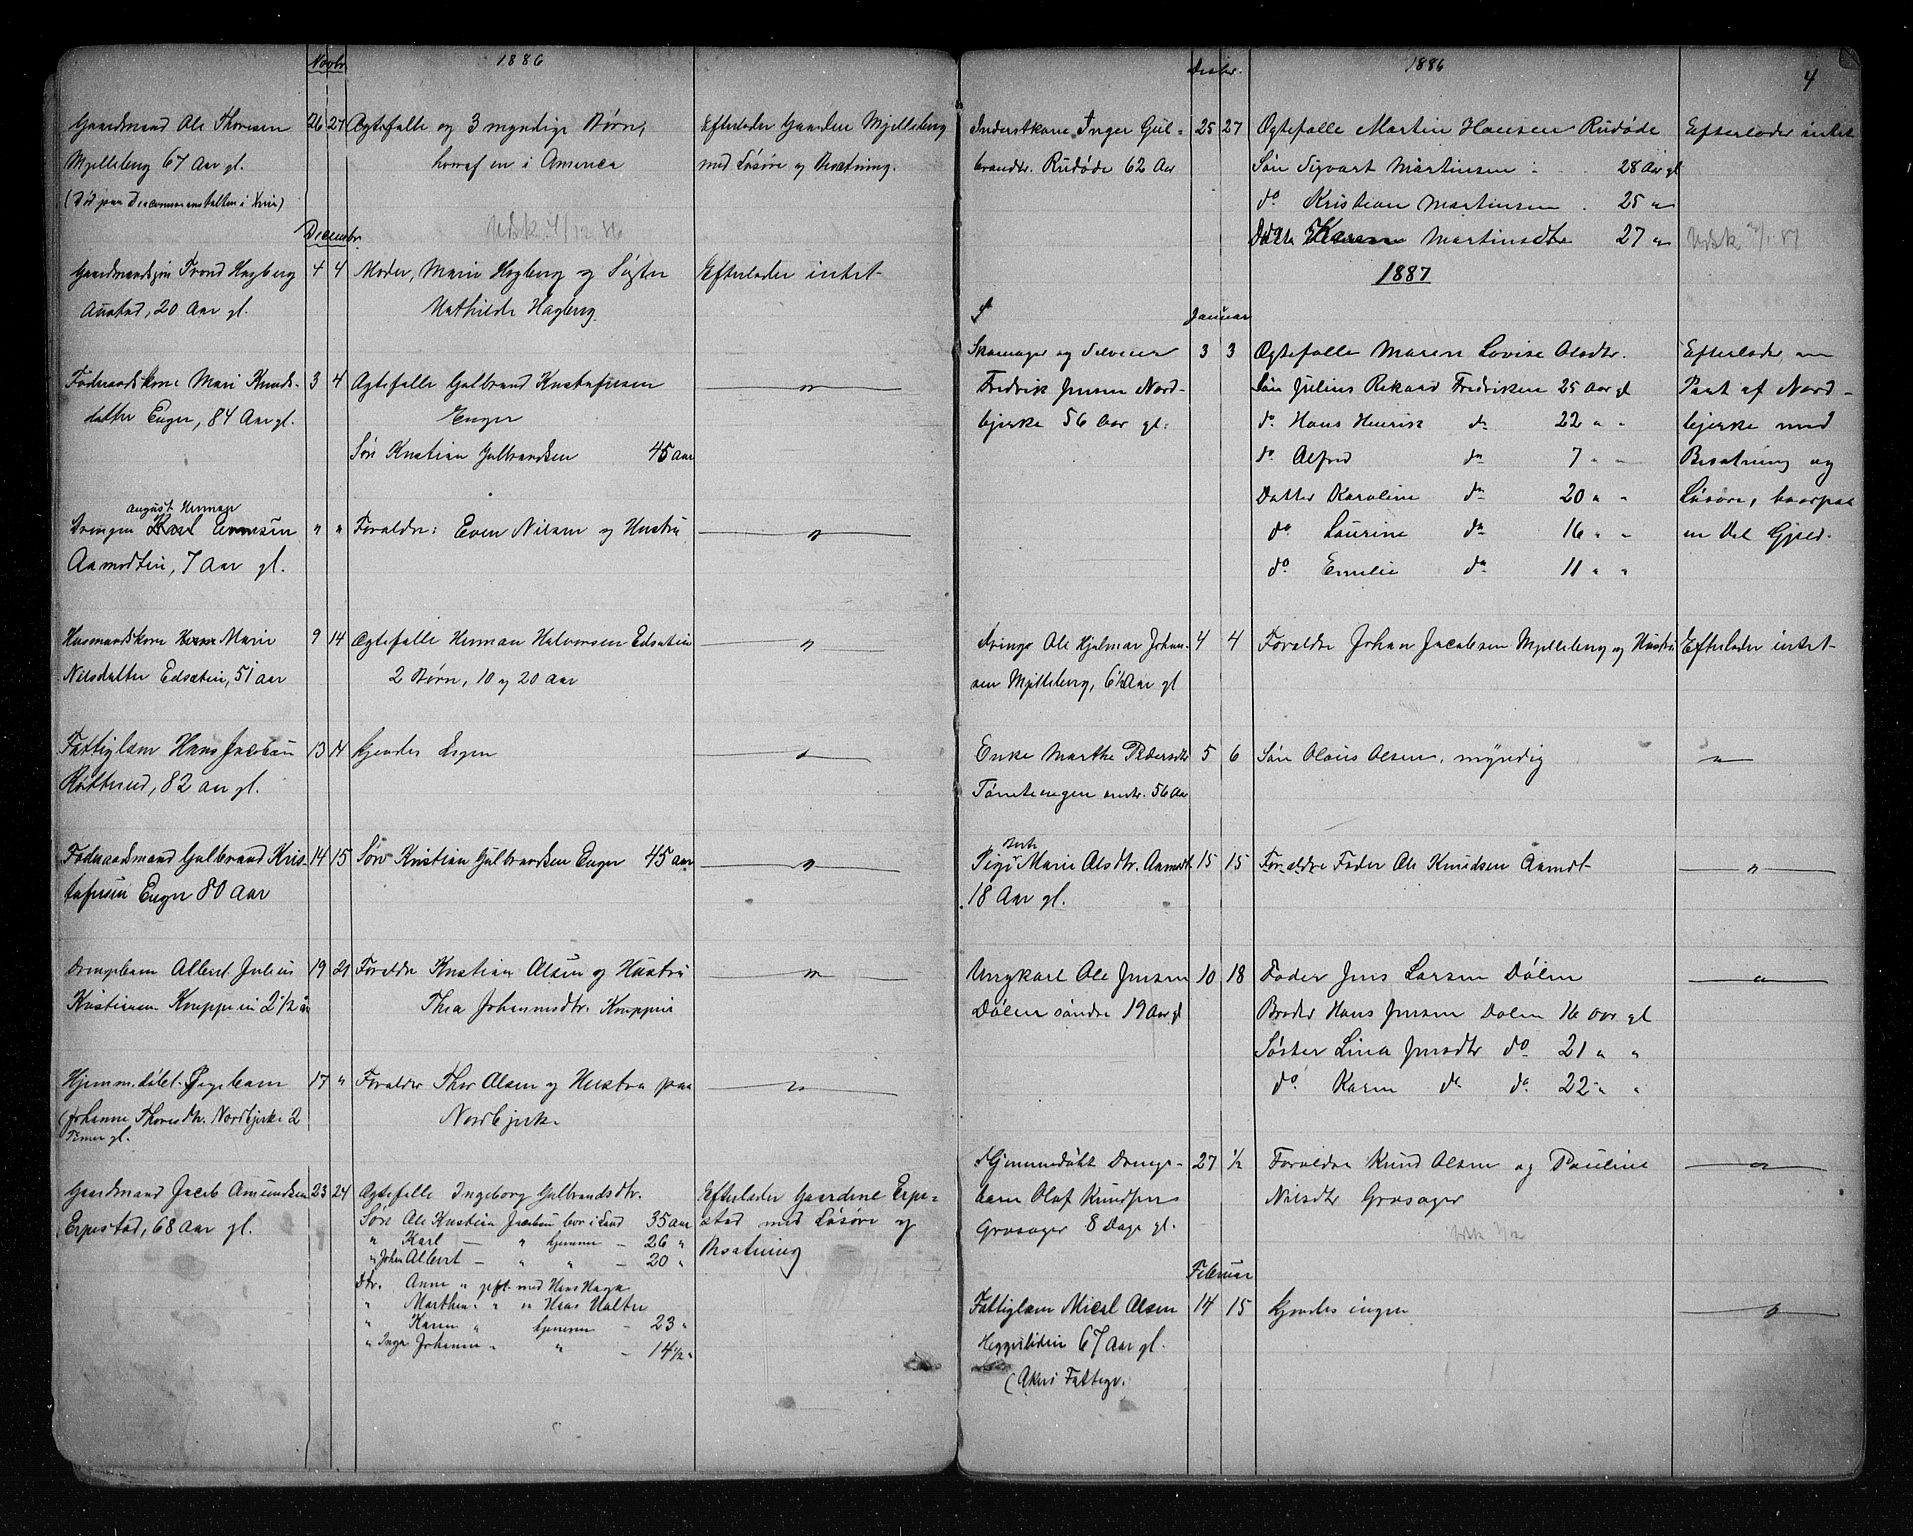 Novbr. 1886
Gaardmand Ole Thoresen 26 27 Ægtefælle og 3 myndige Børn, Efterlader Gaarden Mjelleberg
Mjelleberg 67 Aar gl. hvoraf en i America med Løsøre og Besætning.
(Død paa
Decembr. Udsk 4/12 86
Gaardmandssøn Trond Hagberg 4 4 Moder, Marie Hagberg og Søster Efterlader intet
Austad, 20 Aar gl. Mathilde Hagberg
Føderaadskone Mari Knuds- 3 4 Ægtefælle Gulbrand Kristofersen — " —
datter Enger, 84 Aar gl. Enger
Søn Kristian Gulbrandsen 45 Aar
August Herman
Drengen Karl Evensen " " Forældre: Even Nilsen og Hustru — " —
Aamodteie, 7 Aar gl.
Husmandskone Marie 9 14 Ægtefælle Herman Halvorsen Edsæteie — " —
Nilsdatter Edsæteie, 51 aar 2 Børn, 10 og 20 aar
Fattiglem Hans Jacobsen 13 14 Kjendes Ingen — " —
82 aar gl.
Føderaadsmand Gulbrand Kris- 14 15 Søn Kristian Gulbrandsen Enger 45 aar — " —
tofersen Enger 80 Aar
Drengebarn Albert Julius 19 21 Forældre Kristian Olsen og Hustru — " —
Kristiansen 2 1/2 aar Thea Johannesdtr.
Hjemmedøbt Pigebarn 17 " Forældre Thor Olsen og Hustru paa — " —
(Johanne Thoresdtr. Nordbjerke 2 Nordbjerke
Timer gl.
Gaardmand Jacob Amundsen 23 24 Ægtefælle Ingeborg Gulbrandsdtr. Efterlader Gaardene Erpe-
Erpestad, 68 Aar gl. Søn Ole Kristian Jacobsen bor i Land 35 aar stad med Løsøre og
" Karl — " hjemme — 26 " Besætning
" Johan Albert — " " — 20 "
Dtr. Anne " gift med Hans Haga
" Marthea " " Hans Halter
" Karen " hjemme — 23 "
" Inga Johanne " " — 14 1/2 "
Decbr. 1886 4
Inderstkone Inger Gul- 25 27 Ægtefælle Martin Hansen Rudøde Efterlader intet
brandsr. Rudøde 62 Aar Søn Sigvart Martinsen 28 Aar gl
do Kristian Martinsen 25 "
Datter Karen Martinsdtr 27 " Udsk
1887
Januar
Skomager og Selveier 3 3 Ægtefælle Maren Lovise Olsdtr. Efterlader en
Fredrik Jensen Nord- Søn Julius Rikard Fredriksen 25 Aar gl Part af Nord-
bjerke 56 Aar gl: do Hans Henrik do 22 " " bjerke med
do Alfred do 7 " " Besætning og
Datter Karoline do 20 " " Løsøre, hvorpaa
do Laurine do 16 " " en Del Gjæld.
do Emilie do 11 " "
Dreng Ole Hjalmar Johan- 4 4 Forældre Johan Jacobsen Mjelleberg og Hustru Efterlader intet
sen Mjelleberg, 6 1/2 Aar gl
Enke Marthe Pedersdtr 5 6 Søn Olaus Olsen, myndig — " —
omtr. 56 Aar
Pige Marie Olsdtr. Aamodt 15 15 Forældre Fader Ole Knudsen Aamodt — " —
18 Aar gl.
Ungkarl Ole Jensen 10 18 Fader Jens Larsen Dølen — " —
Dølen søndre 19 Aar gl Broder Hans Jensen Dølen 16 aar gl
Søster Lina Jensdtr do 21 " "
do. Karen do do 22 " "
Hjemmedøbt Drenge- 27 1/2 Forældre Knud Olsen og Pauline — " —
barn Olaf Knudsen Nilsdtr Græsager
Græsager 8 Dage gl.
Februar
Fattiglem Micel Olsen 14 15 Kjendes ingen — " —
67 Aar gl.
(Akers Fattigv.